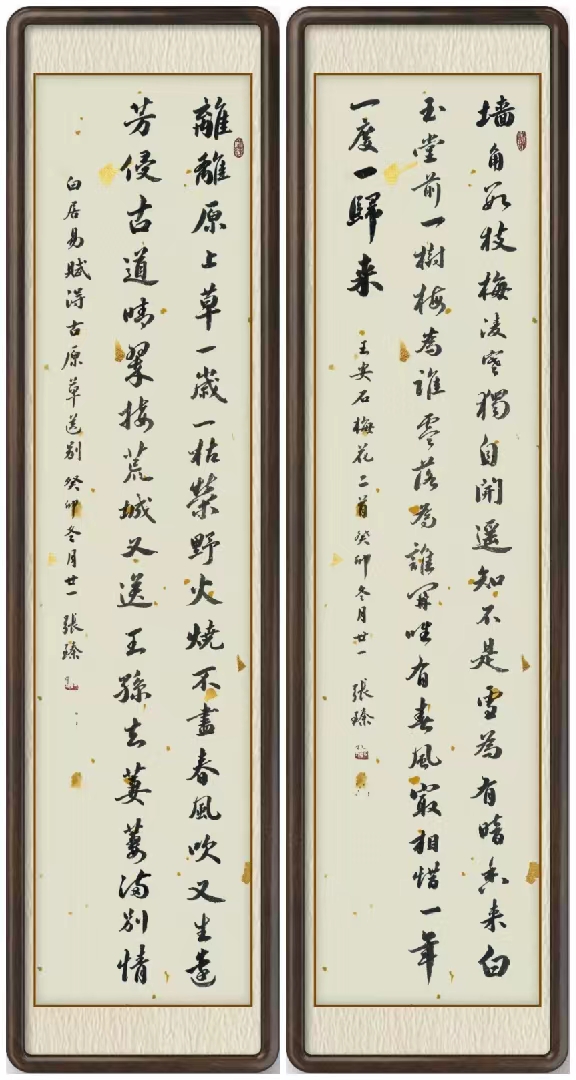 墙角数枝梅凌寒獨自開遥知不是雪為有暗香来白
玉堂前一樹梅為誰零落為誰開唯有春風㝡相惜一年
一度一歸来
王安石梅花二首癸卯冬月廿一 張瑧
離離原上草一歲一枯榮野火燒不盡春風吹又生遠
芳侵古道晴翠接荒城又送王孫去萋萋满别情
白居易賦得古原草送别癸卯冬月廿一 張瑧